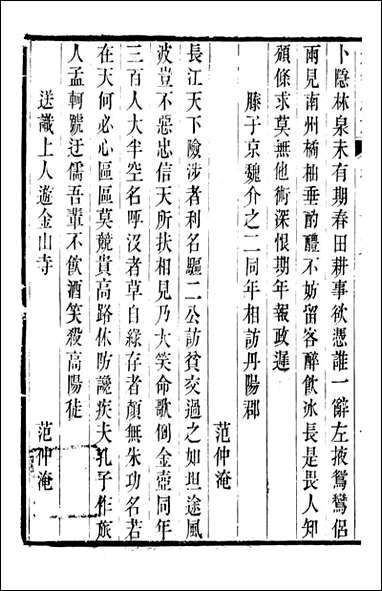 卜隱林泉未有期春田耕事欲憑誰一辭左掖鴛鸞侶
兩見南州橘柚垂酌醴不妨留客醉飲冰長是畏人知
碩條求莫無他術深恨期年報政遲
滕子京魏介之二同年相訪丹陽郡
范仲淹
長江天下險涉者利名驅二公訪貧交過之如坦途風
波豈不惡忠信天所扶相見乃大笑命歌倒金壺同年
三百人大半空名呼沒者草自綠存者顏無朱功名若
在天何必心區區莫競貴高路休防讒疾夫孔子作旅
人孟軻號迂儒吾輩不飲酒笑殺高陽徒
送識上人遊金山寺
范仲淹